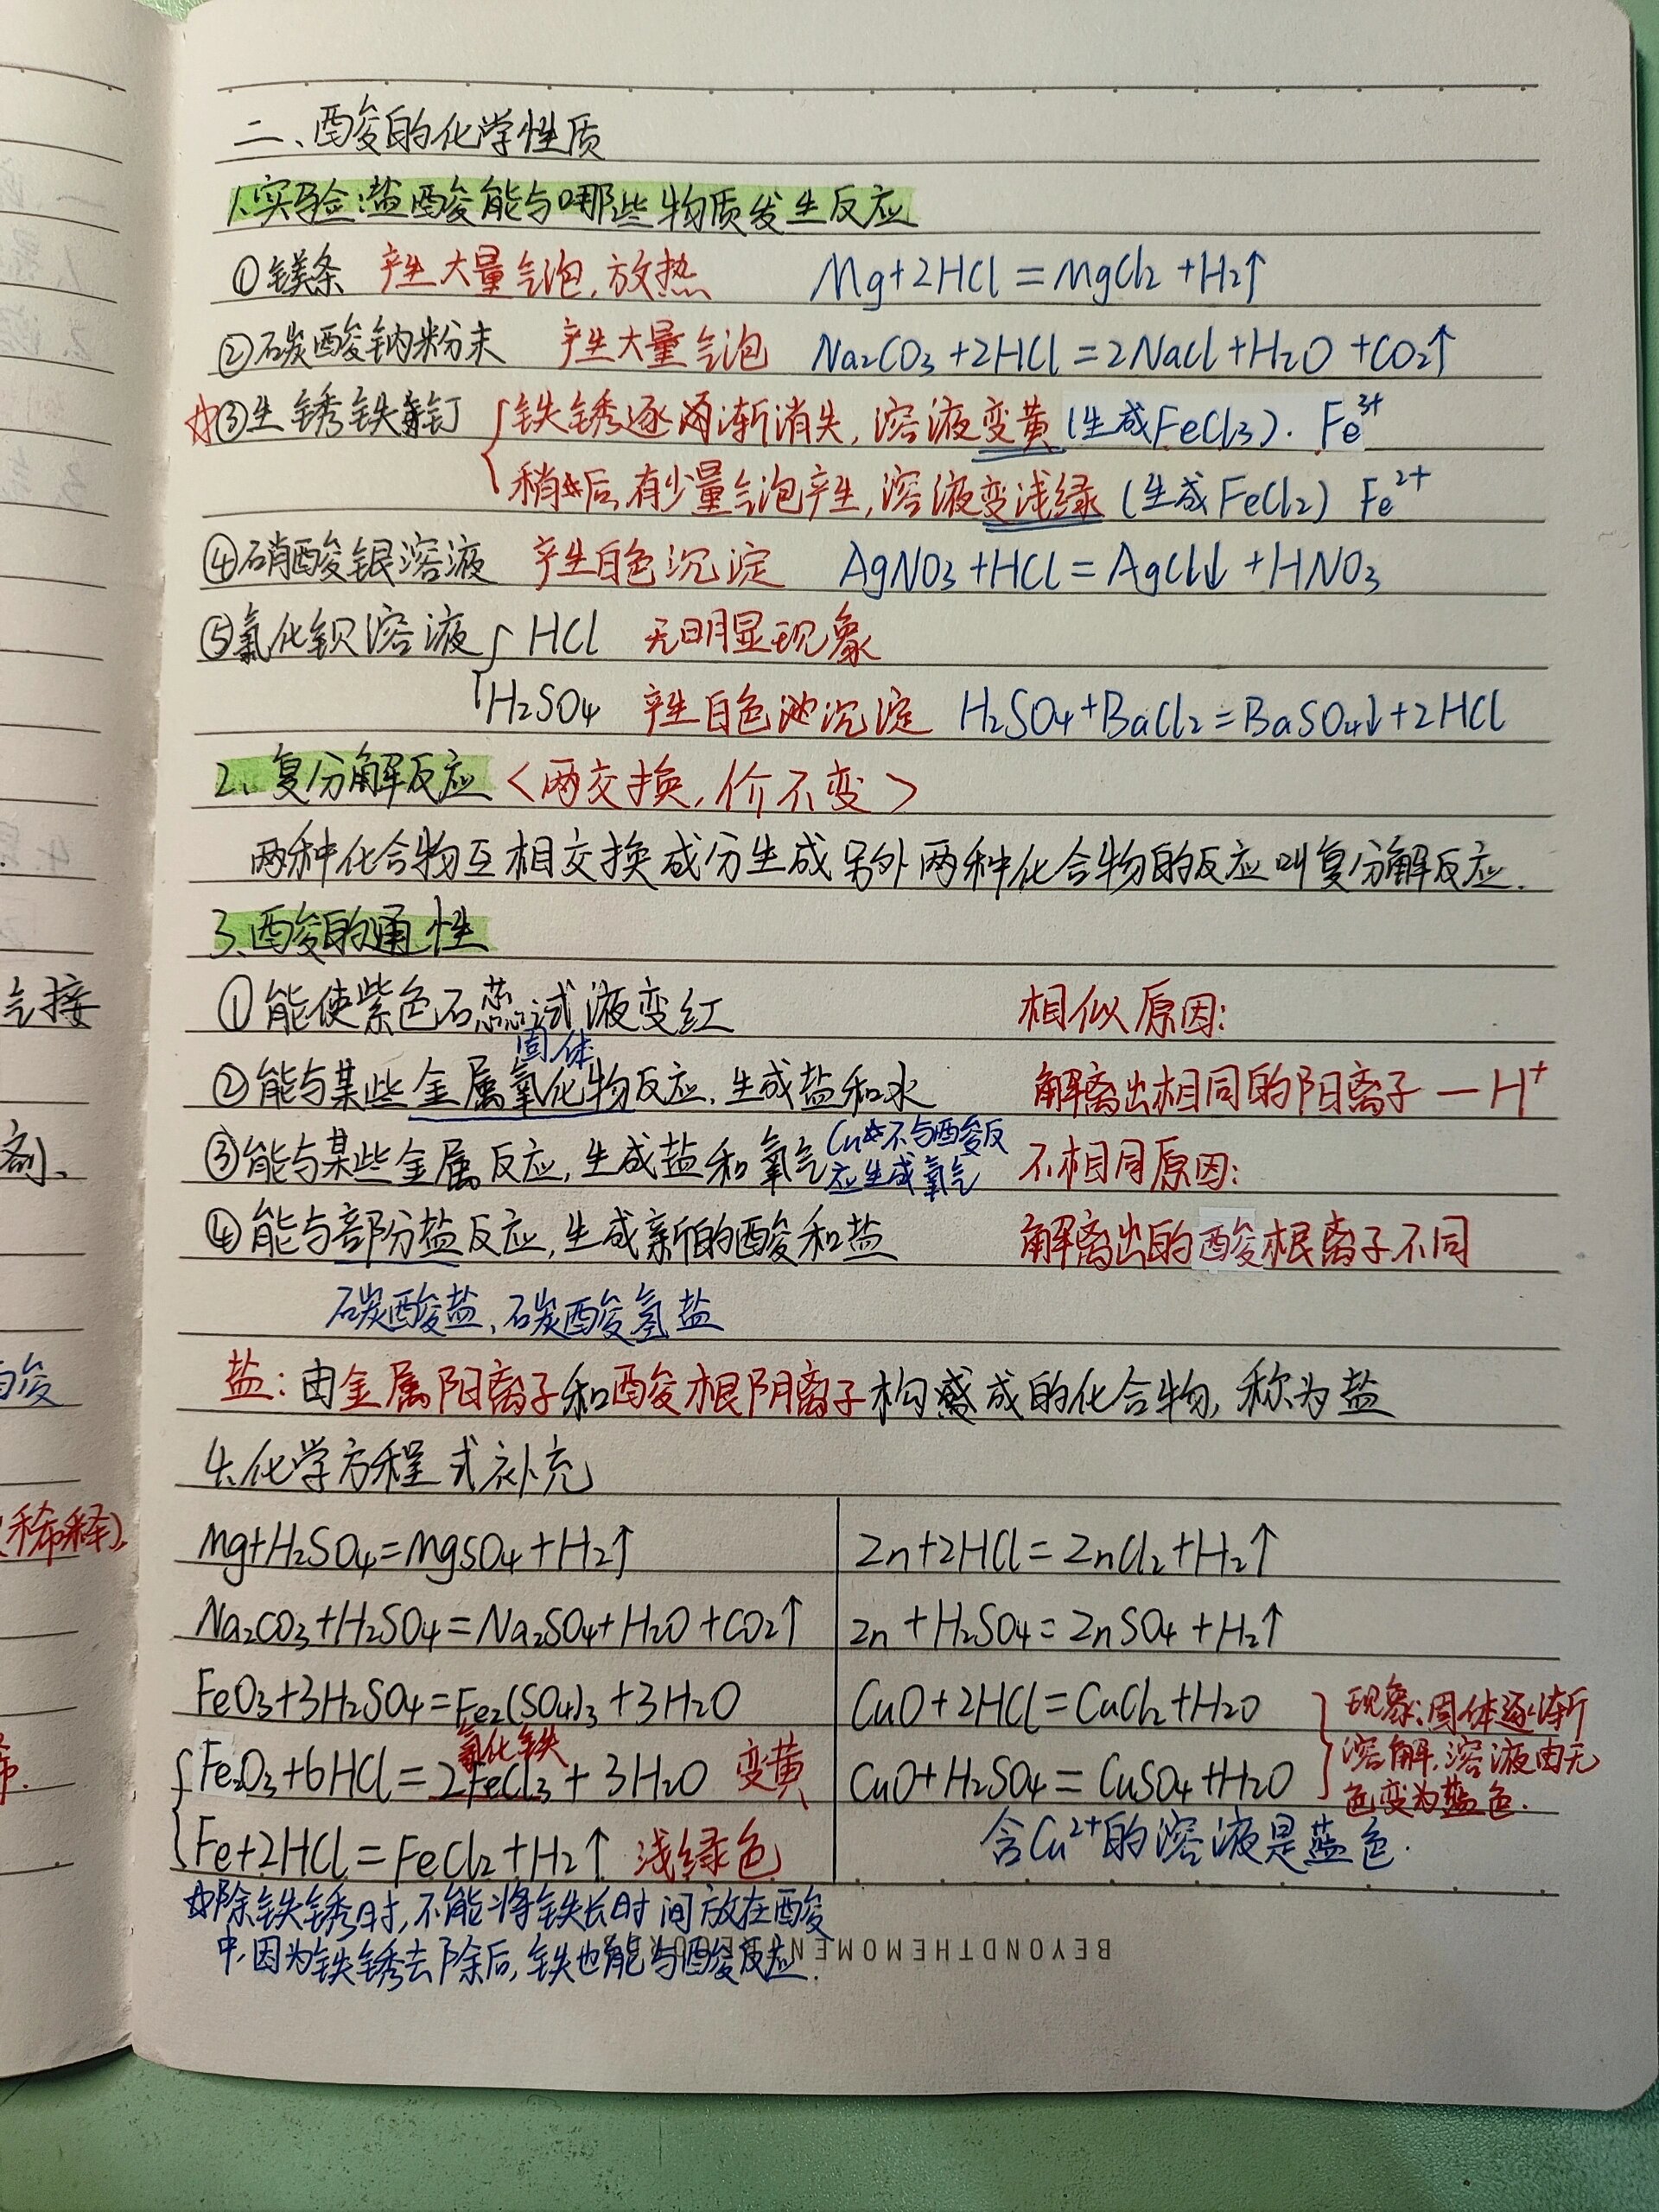 二、酸的化学性质
1.实验:盐酸能与哪些物质发生反应
①镁条 产生大量气泡,放热 Mg+2HCl=MgCl₂+H₂↑
②碳酸钠粉末 产生大量气泡 Na₂CO₃+2HCl=2NaCl+H₂O+CO₂↑
☆③生锈铁钉 铁锈逐渐消失,溶液变黄(生成FeCl₃). Fe³⁺
稍后,有少量气泡产生,溶液变浅绿(生成FeCl₂) Fe²⁺
④硝酸银溶液 产生白色沉淀 AgNO₃+HCl=AgCl↓+HNO₃
⑤氯化钡溶液 HCl 无明显现象
H₂SO₄ 产生白色沉淀 H₂SO₄+BaCl₂=BaSO₄↓+2HCl
2、复分解反应<两交换,价不变>
两种化合物互相交换成分生成另外两种化合物的反应叫复分解反应.
3、酸的通性
①能使紫色石蕊试液变红 相似原因:
固体
②能与某些金属氧化物反应,生成盐和水 解离出相同的阳离子—H⁺
③能与某些金属反应,生成盐和氧气 Cu不与酸反应生成氧气 不相同原因:
④能与部分盐反应,生成新的酸和盐 解离出的酸根离子不同
碳酸盐、碳酸氢盐
盐:由金属阳离子和酸根阴离子构成的化合物,称为盐
4.化学方程式补充
Mg+H₂SO₄=MgSO₄+H₂↑ Zn+2HCl=ZnCl₂+H₂↑
Na₂CO₃+H₂SO₄=Na₂SO₄+H₂O+CO₂↑ Zn+H₂SO₄=ZnSO₄+H₂↑
FeO₃+3H₂SO₄=Fe₂(SO₄)₃+3H₂O CuO+2HCl=CuCl₂+H₂O
氯化铁
Fe₂O₃+6HCl=2FeCl₃+3H₂O 变黄 CuO+H₂SO₄=CuSO₄+H₂O
现象:固体逐渐
溶解,溶液由无
色变为蓝色.
Fe+2HCl=FeCl₂+H₂↑ 浅绿色 含Cu²⁺的溶液是蓝色.
☆除铁锈时,不能将铁长时间放在酸
中,因为铁锈去除后,铁也能与酸反应.
气接
剂、
酸
(稀释).